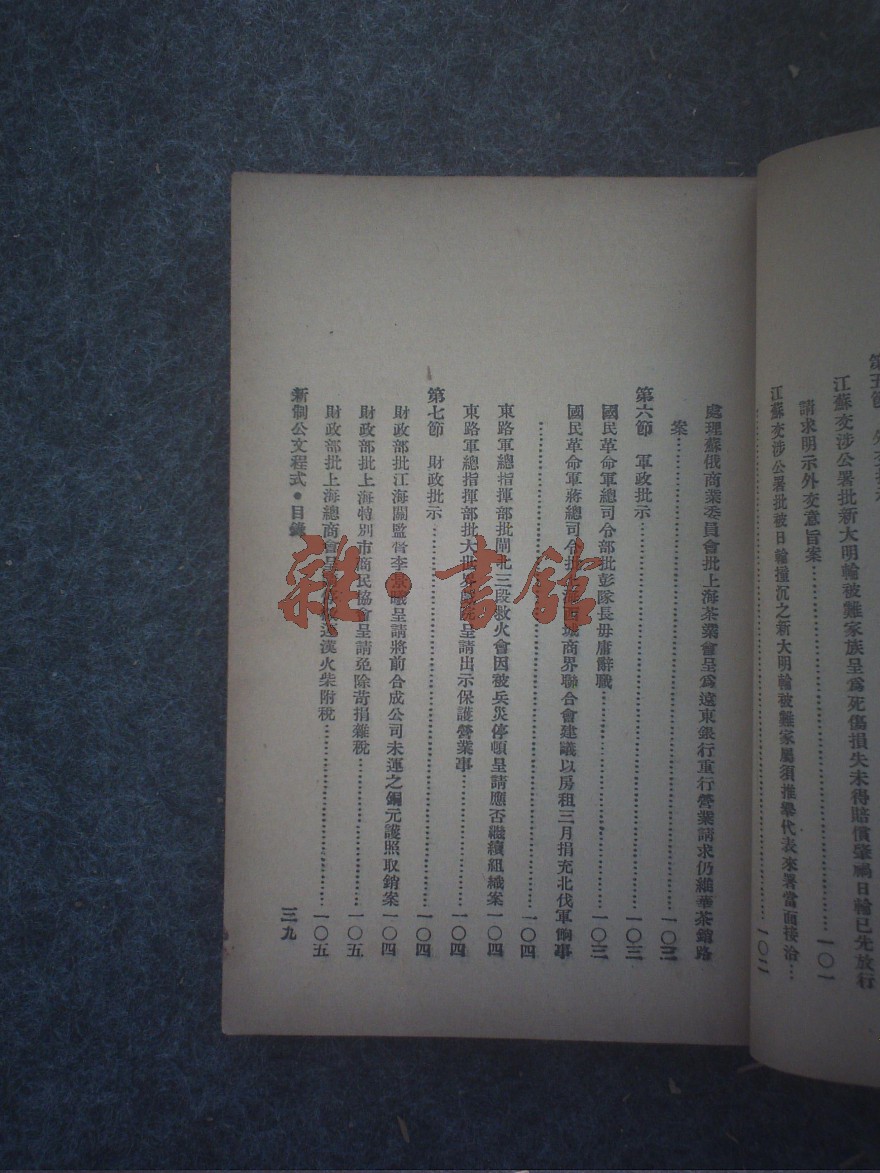 江蘇交涉公署批新大明輪被難家族呈爲死傷損失未得賠償肇禍日輪已先放行
請求明示外交意旨案⋯⋯⋯⋯一〇一
江蘇交涉公署批被日輪撞沉之新大明輪被難家屬須推舉代表來署當面接洽⋯
⋯⋯⋯⋯一〇二
處理蘇俄商業委員會批上海茶業會呈爲遠東銀行重行營業請求仍維華茶銷路
案⋯⋯⋯⋯一〇三
第六節 軍政批示⋯⋯⋯⋯一〇三
國民革命軍總司令部批彭隊長毋庸辭職⋯⋯⋯⋯一〇三
國民革命軍蔣總司令批上海西城商界聯合會建議以房租三月捐充北伐軍餉事
⋯⋯⋯⋯一〇四
東路軍總指揮部批閘北三段救火會因被兵災停頓呈請應否繼續組織案一〇四
東路軍總指揮部批大世界呈請出示保護營業事⋯⋯⋯⋯一〇四
第七節 財政批示⋯⋯⋯⋯一〇四
財政部批江海關監督李呈請將前合成公司未運之銅元護照取銷案一〇四
財政部批上海特別市商民協會呈請免除苛捐雜稅⋯⋯⋯⋯一〇五
財政部批上海總商會呈漢火柴附稅⋯⋯⋯⋯一〇五
新制公文程式・目錄
三九
雜・書館